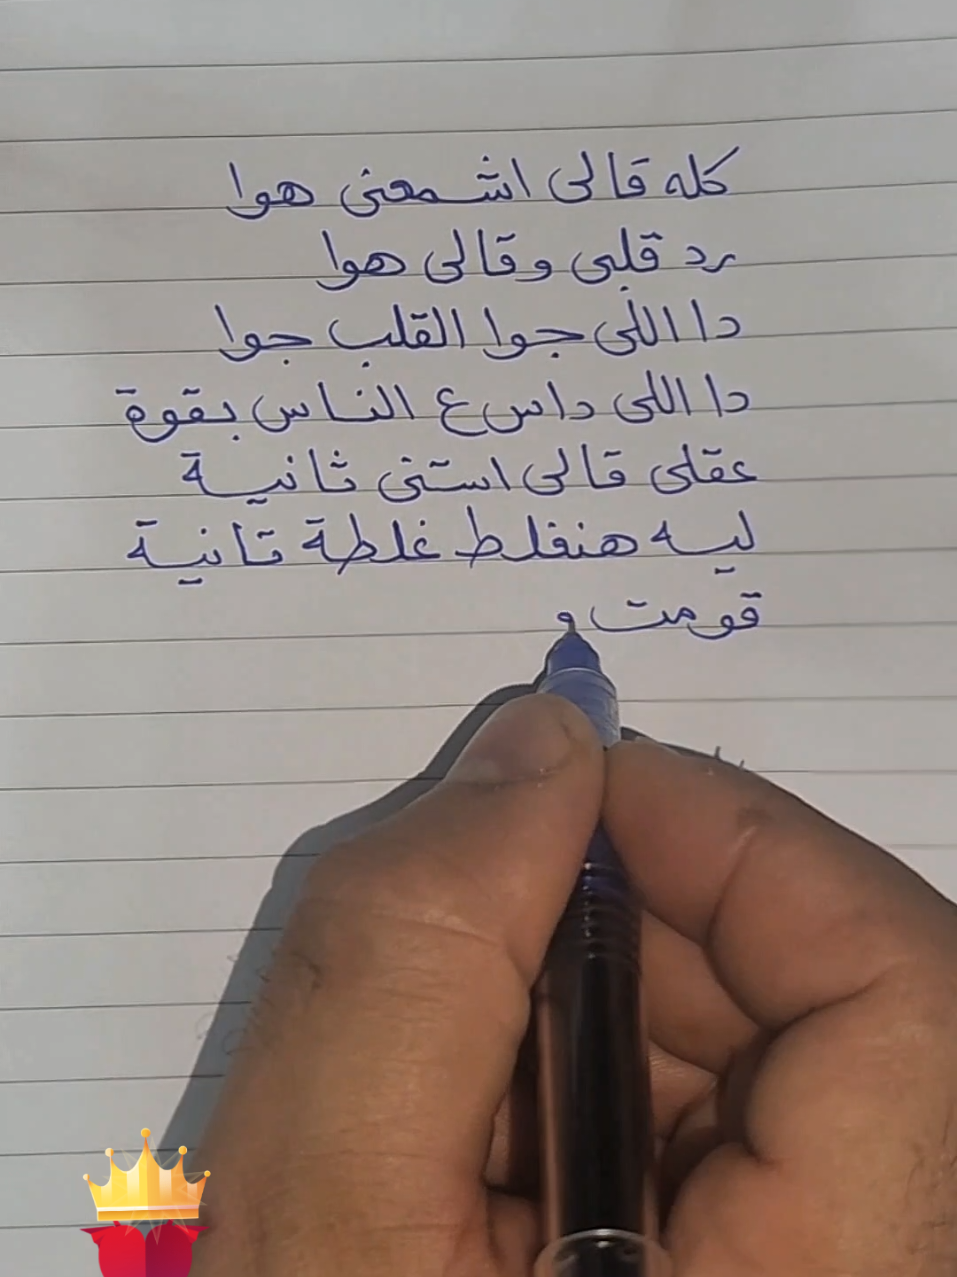 كله قالى اشمعنى هوا
رد قلبى وقالى هوا
دا اللى جوا القلب جوا
دا اللى داس ع الناس بقوة
عقلى قالى استنى ثانية
ليه هنغلط غلطة تانية
قومت و